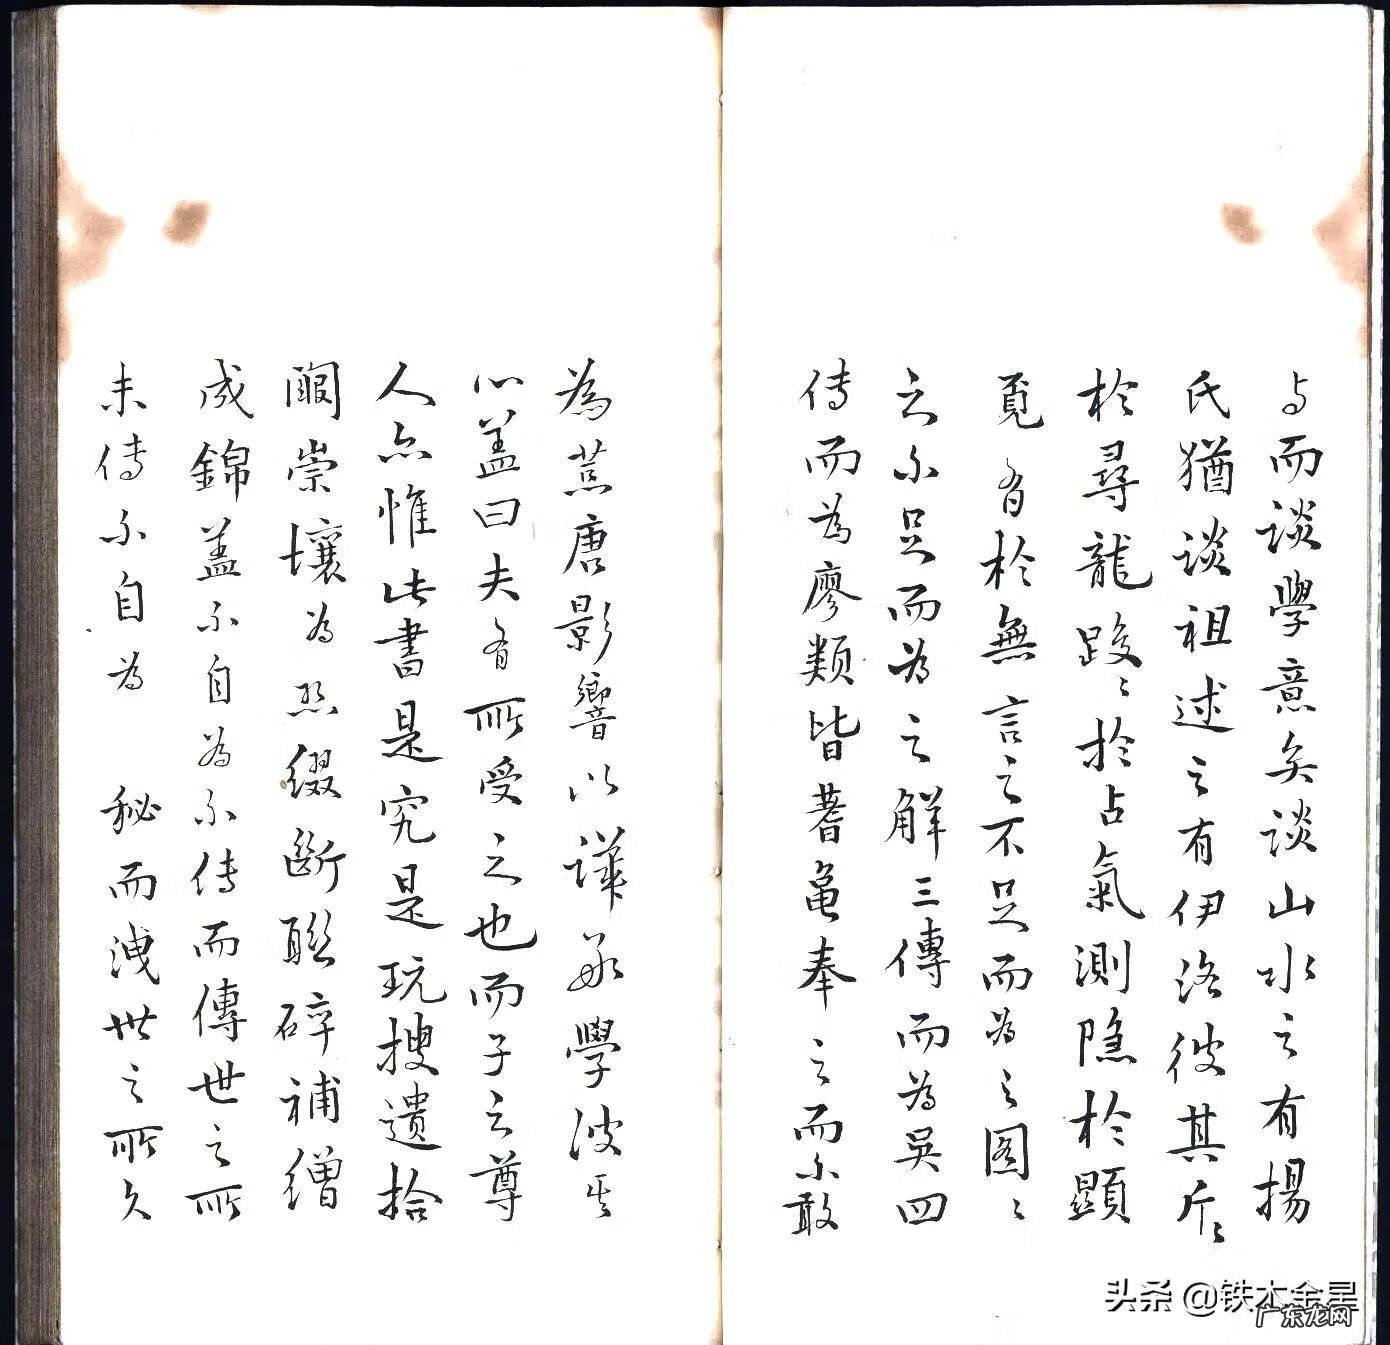 与而談學意矣談山水之有揚
氏猶談祖述之有伊洛彼其斤々
於尋龍踆々於占氣測隱於顯
覓有於無言之不足而為之图々
之不足而為之解三傳而為吳四
傳而為廖類皆蓍龜奉之而不敢
為荒唐影響以譁取學波其
心盖曰夫有所受之也而子之尊
人亦惟此書是究是玩搜遺拾
闕崇壤為點綴斷聯碎補繒
成錦盖不自為不傳而傳世之所
未傳不自為 秘而洩世之所久
头条 @铁木金星
广东龙网